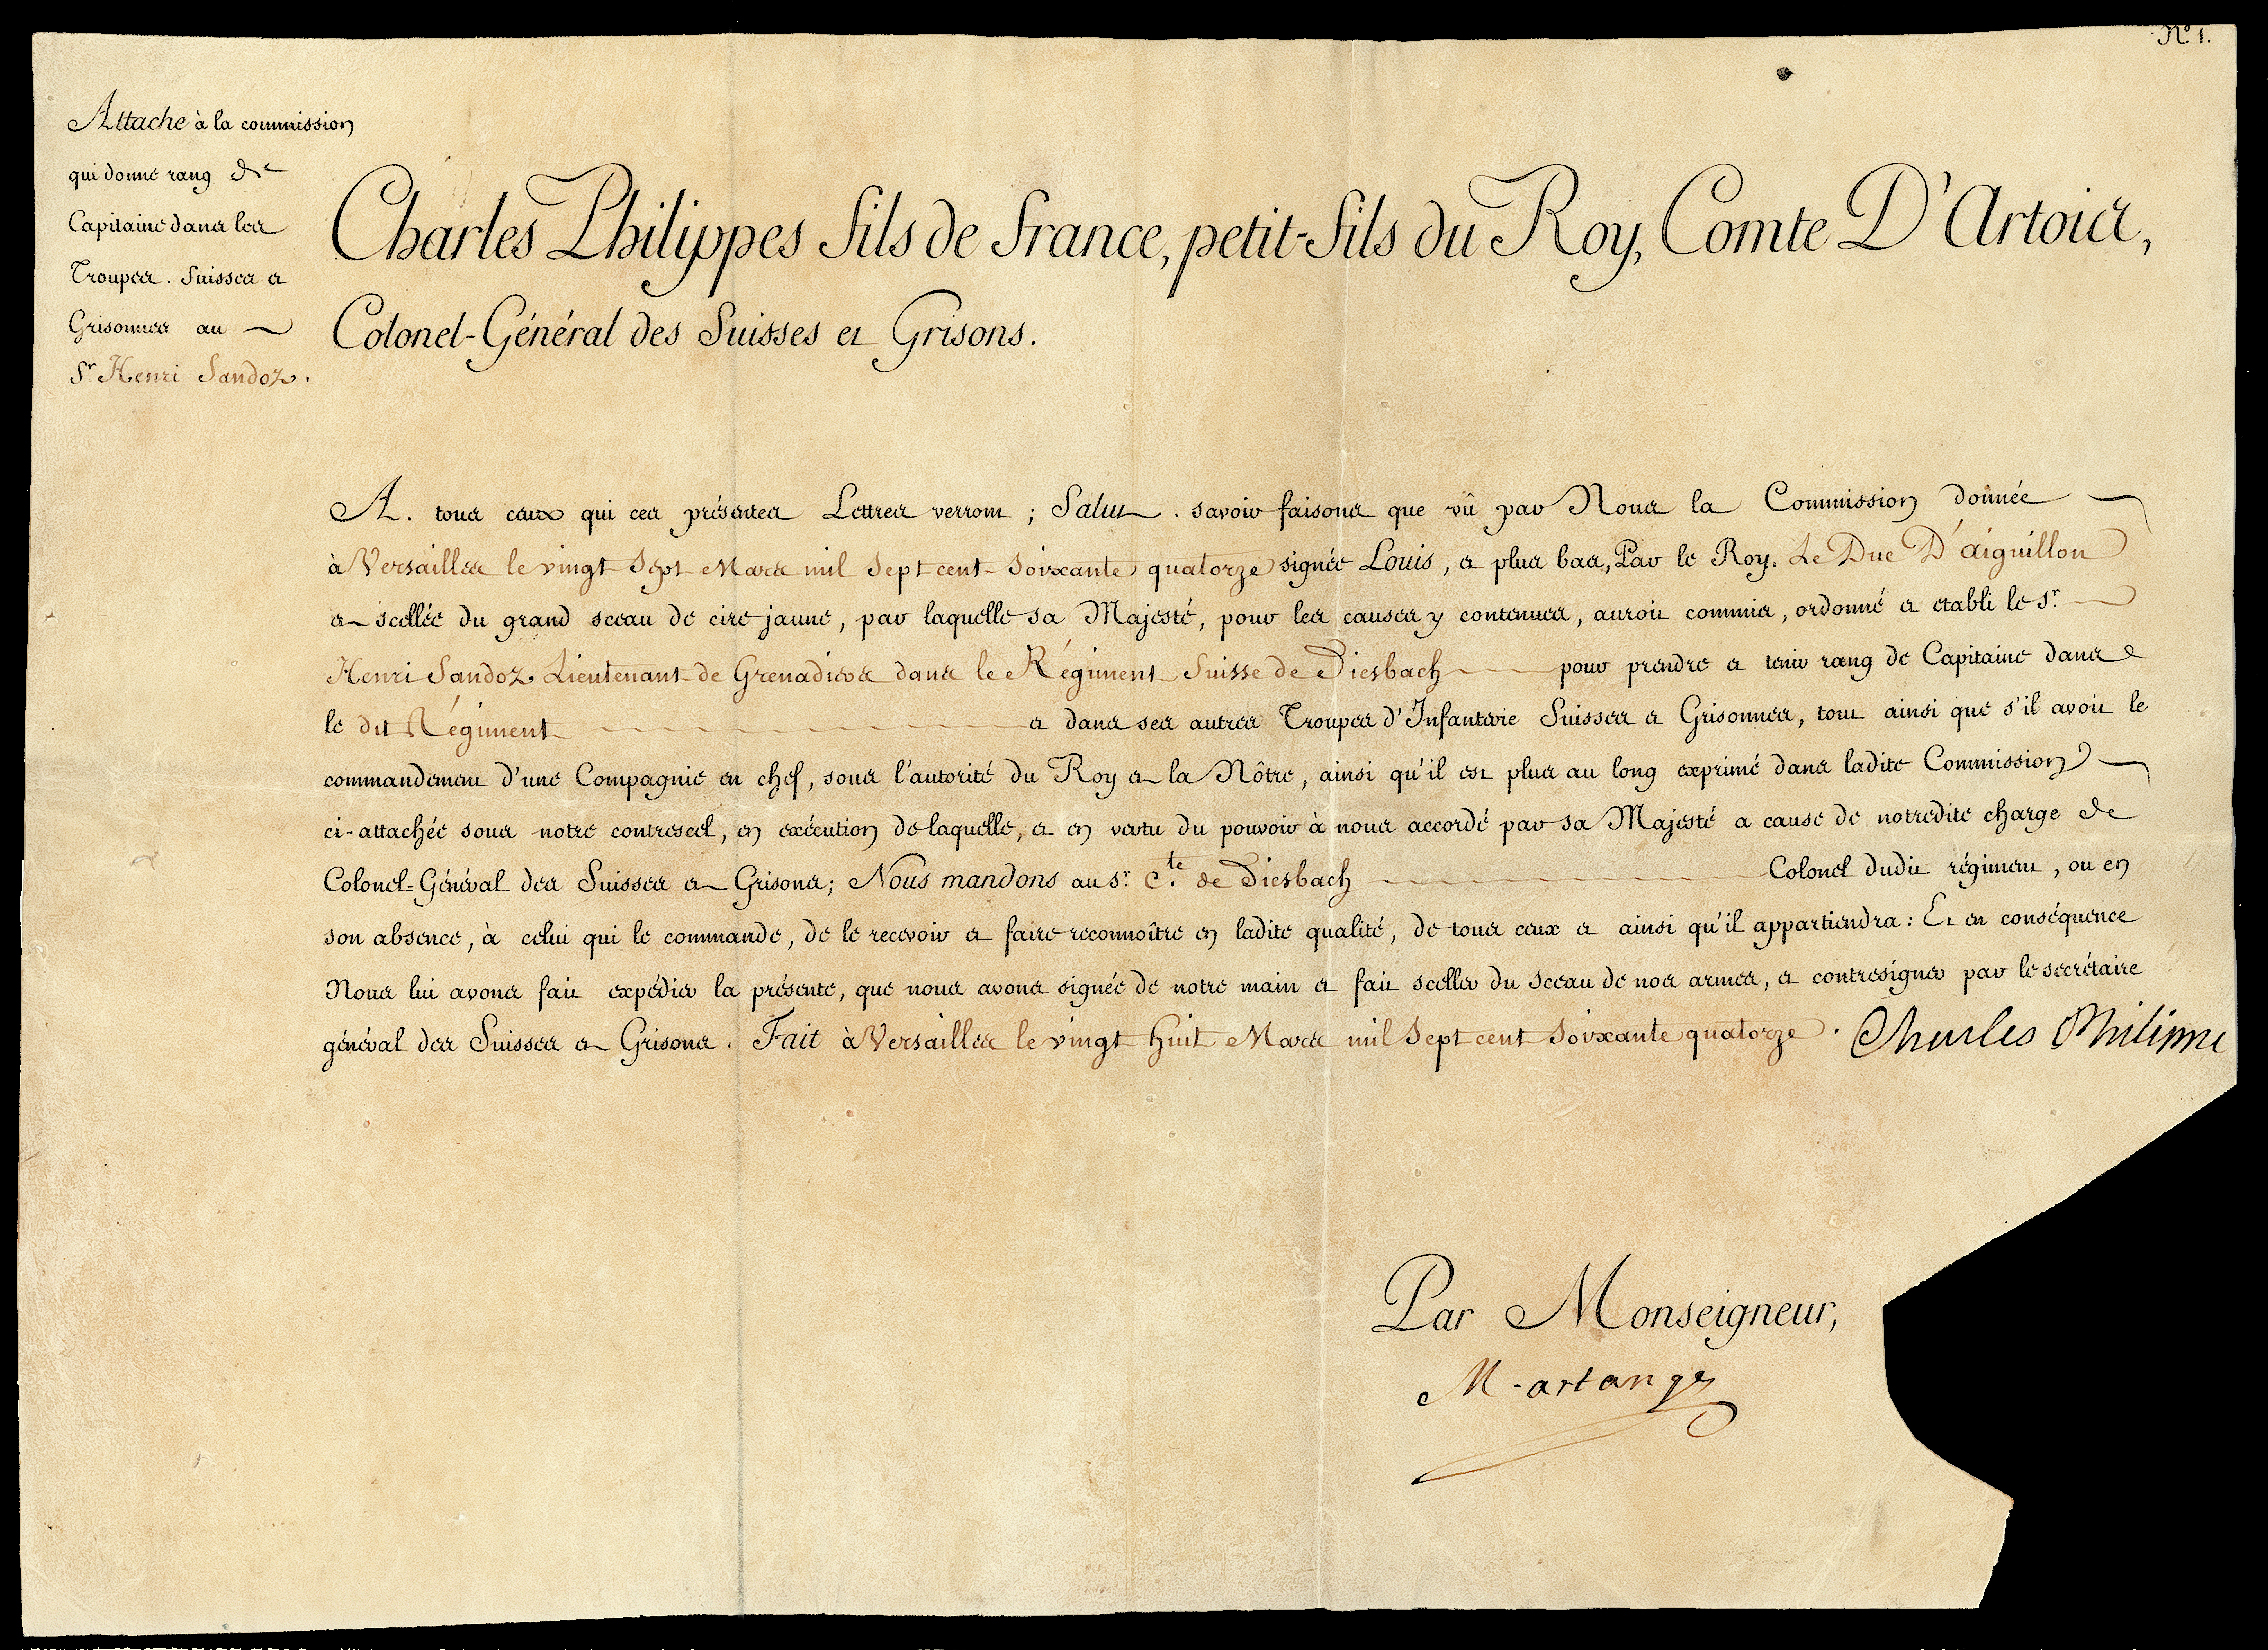 N.º 1.
Attache à la commission
qui donne rang de
Capitaine dans les
Troupes Suisses et
Grisonnes au
S.r Henri Sandoz.
Charles Philippes fils de france, petit-fils du Roy, Comte D'Artois,
Colonel-Général des Suisses et Grisons.
A. tous ceux qui ces présentes Lettres verront ; Salut. savoir faisons que vû par Nous la Commission donnée
à Versailles le vingt Sept Mars mil Sept cent Soixante quatorze signée Louis, et plus bas, Par le Roy. Le Duc D'aiguillon
et scellée du grand sceau de cire jaune, par laquelle sa Majesté, pour les causes y contenues, auroit commis, ordonné et etabli le S.r
Henri Sandoz Lieutenant de Grenadiers dans le Régiment Suisse de Diesbach pour prendre et tenir rang de Capitaine dans
le dit Régiment et dans ses autres Troupes d'Infanterie Suisses et Grisonnes, tout ainsi que s'il avoit le
commandement d'une Compagnie en chef, sous l'autorité du Roy et la Nôtre, ainsi qu'il est plus au long exprimé dans ladite Commission
ci-attachée sous notre contrescel, en exécution de laquelle, et en vertu du pouvoir à nous accordé par sa Majesté a cause de notredite charge de
Colonel-Général des Suisses et Grisons; Nous mandons au S.r C.te de Diesbach Colonel dudit régiment, ou en
son absence, à celui qui le commande, de le recevoir et faire reconnoître en ladite qualité, de tous ceux et ainsi qu'il appartiendra: Et en conséquence
Nous lui avons fait expédier la présente, que nous avons signée de notre main et fait sceller du sceau de nos armes, et contresigner par le secrétaire
général des Suisses et Grisons. Fait à Versailles le vingt huit Mars mil Sept cent Soixante quatorze. Charles Philippe
Par Monseigneur,
Martange